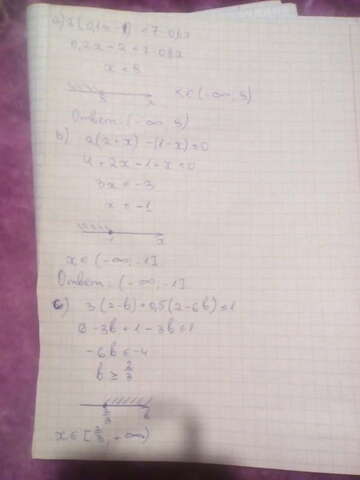 а) 2(0,1x - 1) < 7 - 0,8x
0,2x - 2 < 7 - 0,8x
x < 9
9 x
x ∈ (-∞; 9)
Ответ: (-∞; 9)
b) 2(2+x) - (1-x) ≤ 0
4 + 2x - 1 + x ≤ 0
3x ≤ -3
x ≤ -1
-1 x
x ∈ (-∞; -1]
Ответ: (-∞; -1]
c) 3(2-b) + 0,5(2-6b) ≤ 1
6 - 3b + 1 - 3b ≤ 1
-6b ≤ -4
b ≥ 2/3
2/3 b
x ∈ [2/3; +∞)